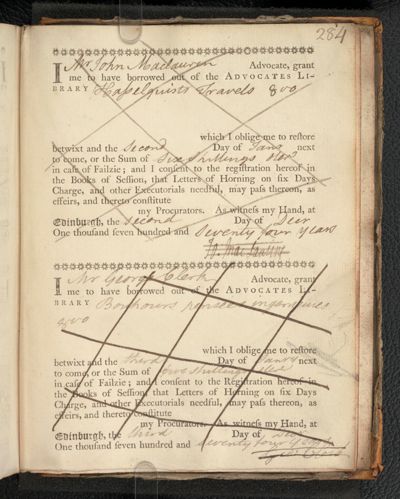 284
I Mr John Maclauren Advocate, grant
me to have borrowed out of the ADVOCATES LI-
BRARY Hasselquists Travels 8vo
which I oblige me to reſtore
betwixt and the Second Day of Jany next
to come, or the Sum of Six Shillings
in caſe of Failzie; and I conſent to the regiſtration hereof in
the Books of Seſſion, that Letters of Horning on ſix Days
Charge, and other Executorials needful, may paſs thereon, as
effeirs, and thereto conſtitute
my Procurators. As witneſs my Hand, at
Edinburgh, the Second Day of Decr
One thouſand ſeven hundred and Seventy four Years
Jo. MacLaurin
I Mr George Clerk Advocate, grant
me to have borrowed out of the ADVOCATES LI-
BRARY Bouhours pensées ingenieuses
8vo
which I oblige me to reſtore
betwixt and the third Day of Jany next
to come, or the Sum of four shillings
in caſe of Failzie; and I conſent to the Regiſtration hereof in
the Books of Seſſion, that Letters of Horning on ſix Days
Charge, and other Executorials needful, may paſs thereon, as
effeirs, and thereto conſtitute
my Procurators. As witneſs my Hand, at
Edinburgh, the third Day of Decr
One thouſand ſeven hundred and seventy four Years
Geo Clerk